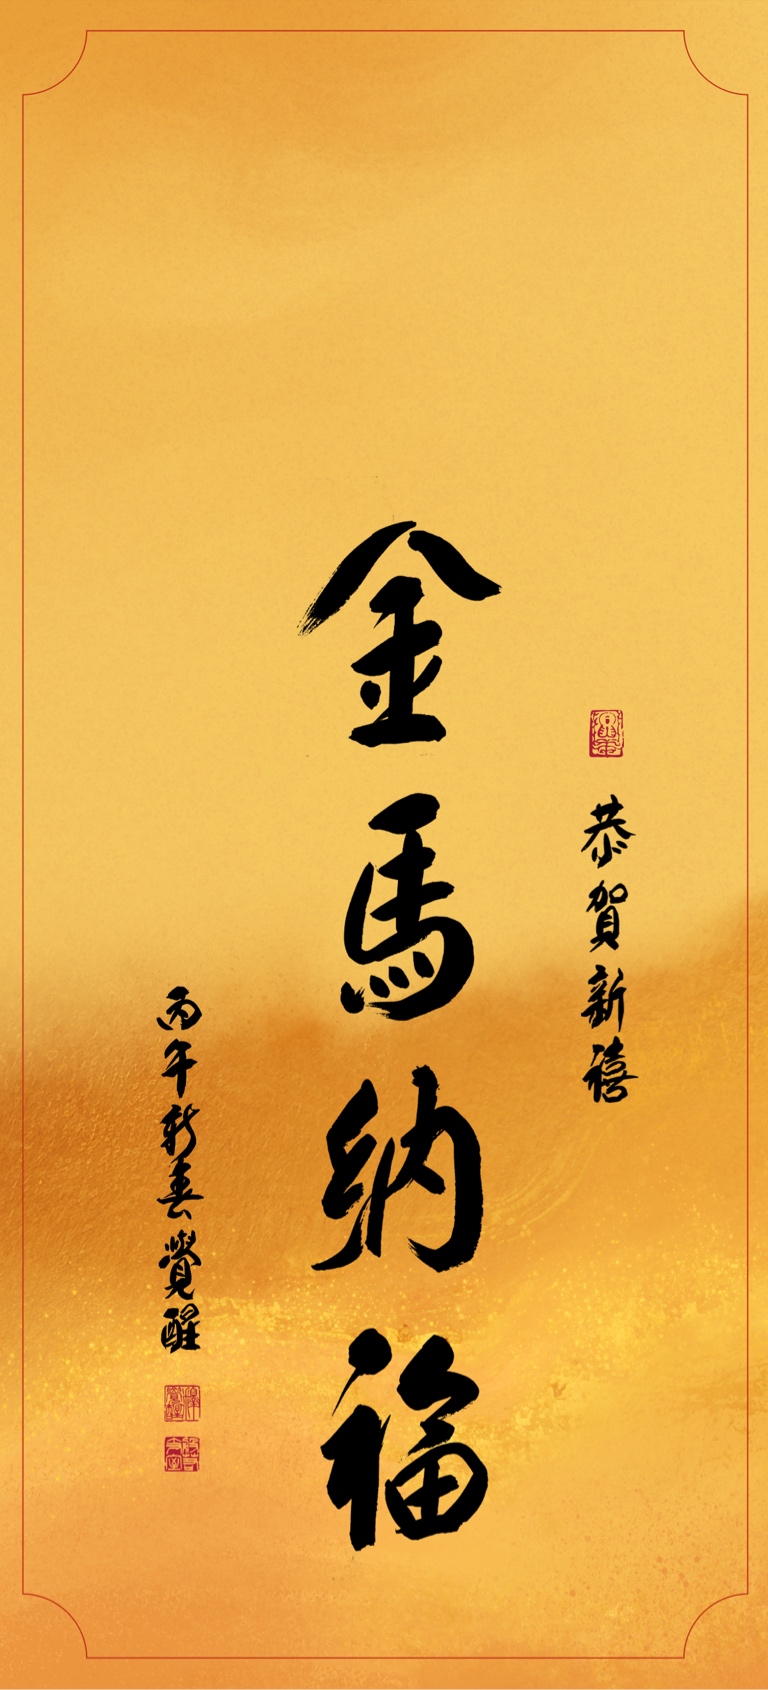 恭賀新禧
金馬納福
丙午新春覺醒